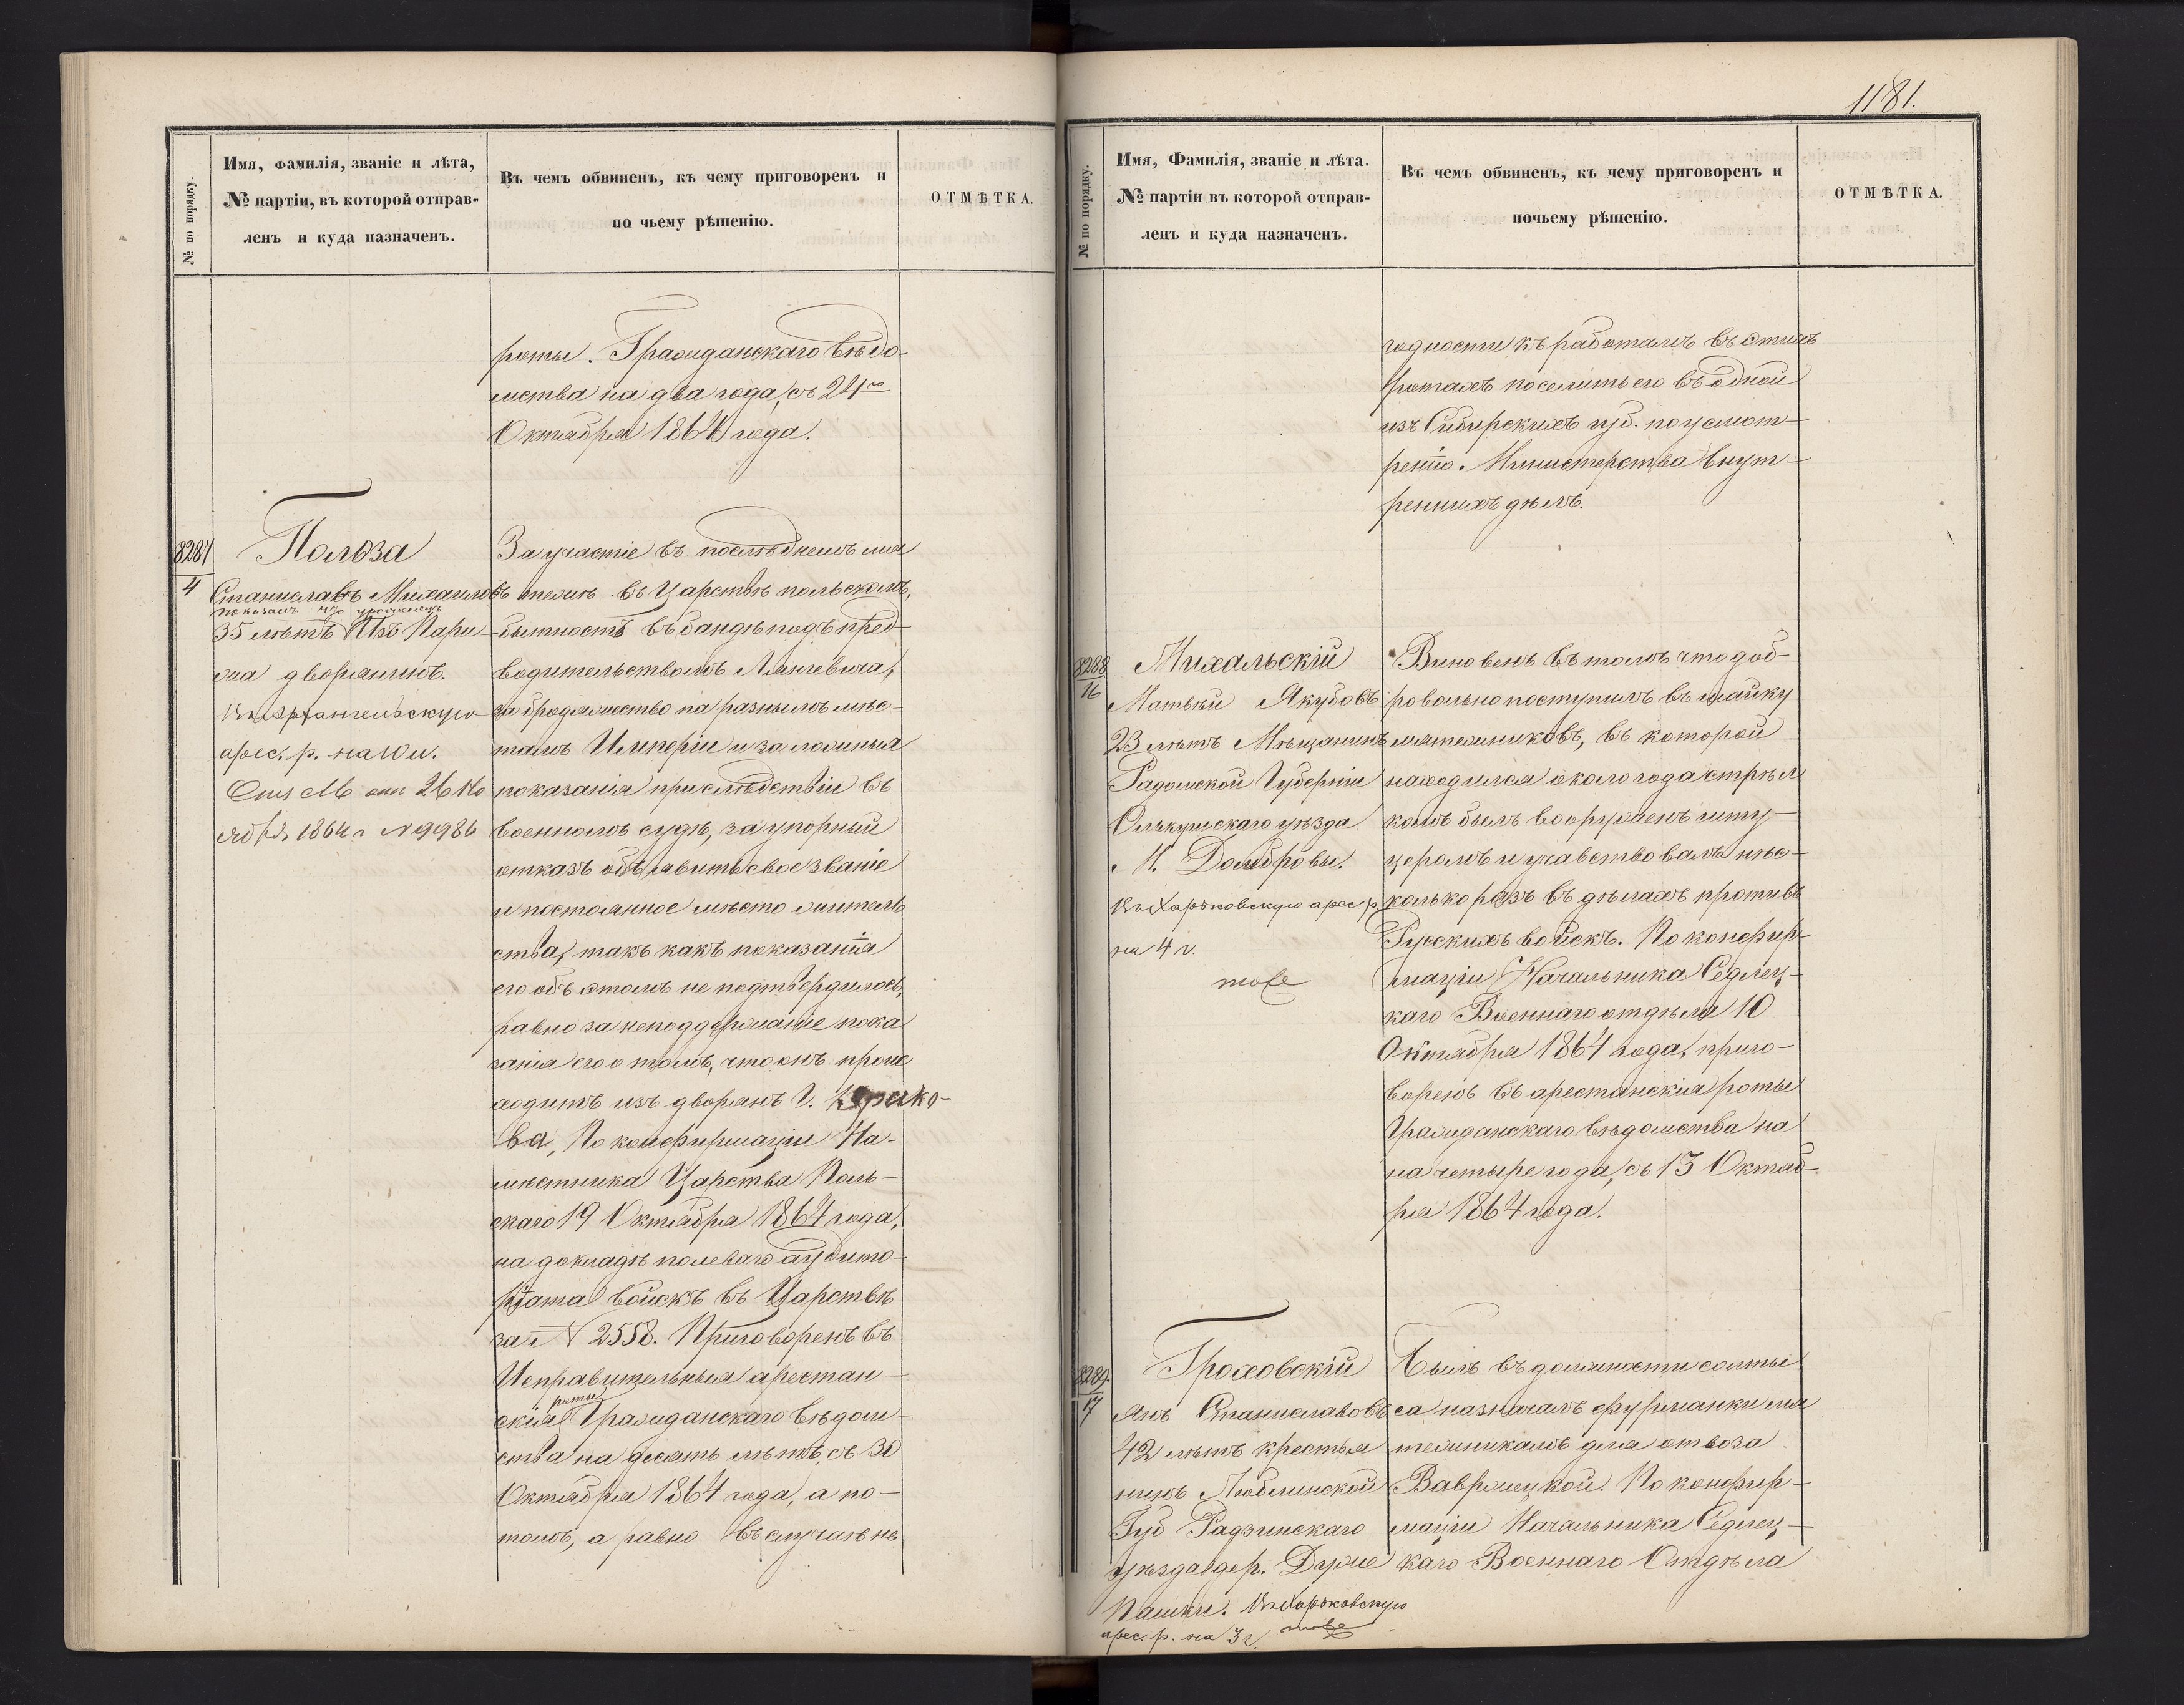 1181.
№ по порядку.
Имя, фамилія, званіе и лѣта,
№ партіи, въ которой отправ-
ленъ и куда назначенъ.
Въ чемъ обвиненъ, къ чему приговоренъ и
по чьему рѣшенію.
ОТМѢТКА.
роты. Гражданскаго вѣдо-
мства на два года, съ 24го
Октября 1864 года.
8287
4
Полоза
Станиславъ Михаиловъ
показалъ что уроженецъ
35 лѣтъ Изъ Пари-
жа дворянинъ.
Въ Архангельскую
арес. р. на 10 л.
26 Но
ября 1864 г. № 9986
За участіе въ послѣднемъ мя
тежѣ въ Царствѣ польскомъ,
бытность въ бандѣ подъ пред-
водительствомъ Лянгевича,
за бродяжество на разныхъ мѣс-
тахъ Имперіи и за ложныя
показанія при слѣдствіи въ
военномъ судѣ, за упорный
отказъ объявить свое званіе
и постоянное мѣсто житель
ства, такъ какъ показанія
его объ этомъ не подтвердилось,
равно за неподдержаніе пока
занія его о томъ, что онъ проис
ходитъ изъ дворянъ Г. Крако-
ва, По конфирмаціи На-
мѣстника Царства Поль-
скаго 19 Октября 1864 года,
на докладѣ полеваго аудито-
ріата войскъ въ Царствѣ
за № 2558. Приговоренъ въ
Исправительныя арестан-
скія роты Гражданскаго вѣдом-
ства на десять лѣтъ, съ 30
Октября 1864 года, а по-
томъ, а равно въ случаѣ не
№ по порядку.
Имя, Фамилія, званіе и лѣта.
№ партіи въ которой отправ-
ленъ и куда назначенъ.
Въ чемъ обвиненъ, къ чему приговоренъ и
почьему рѣшенію.
ОТМѢТКА.
годности къ работамъ въ этихъ
ротахъ поселить его въ одной
изъ Сибирскихъ губ. по усмот-
ренію Министерства внут-
реннихъ дѣлъ.
8288
16
Михальскій
Матвѣй Якубовъ
23 лѣтъ Мѣщанинъ
Радомской Губерніи
Олькушскаго уѣзда
М. Домбровы.
Въ Харьковскую арес. р.
на 4 г.
тоже
Виновенъ въ томъ что доб-
ровольно поступилъ въ шайку
мятежниковъ, въ которой
находился около года стрѣл
комъ былъ вооруженъ шту-
церомъ и учавствовалъ нѣс-
колько разъ въ дѣлахъ противъ
Русскихъ войскъ. По конфир-
маціи Начальника Седлец-
каго Военнаго отдѣла 10
Октября 1864 года, приго-
воренъ въ арестанскія роты
Гражданскаго вѣдомства на
на четыре года, съ 13 Октяб-
ря 1864 года.
8289.
17
Гроховскій
Янъ Станиславовъ
42 лѣтъ крестья
нинъ Люблинской
Губ Радзинскаго
уѣзда дер.
Пашки. Въ Харьковскую
арес. р. на 3 г. тоже
Былъ въ должности солты
са назначалъ фурманки мя
тежникамъ для отвоза
Вавржецкой. По конфир-
маціи Начальника Седлец-
каго Военнаго Отдѣла